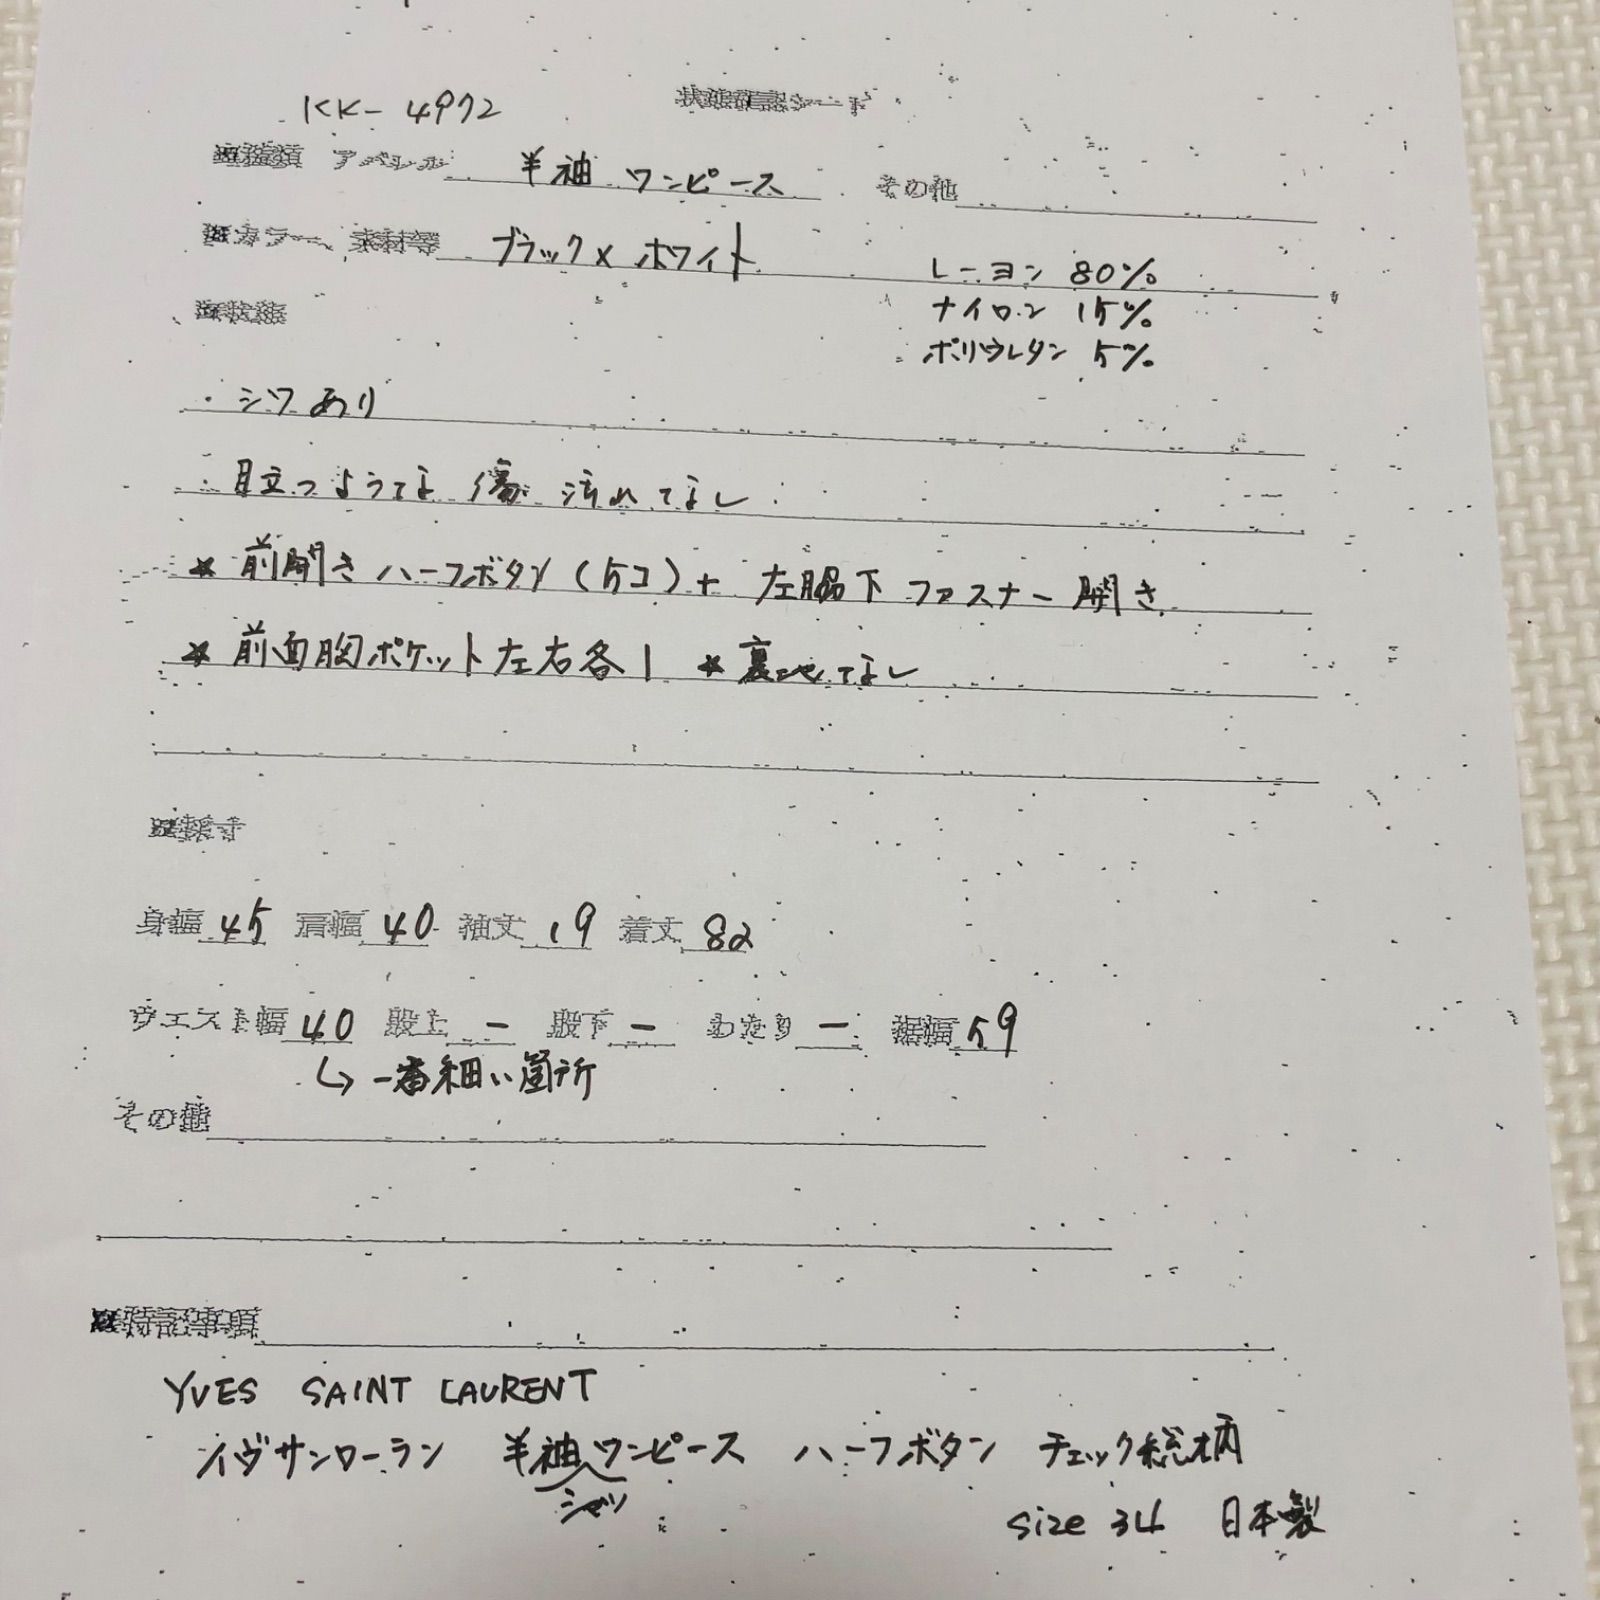 KK-4972 状態確認シート
■種類 アパレル 半袖 ワンピース その他
■カラー、素材等 ブラック×ホワイト レーヨン 80%
ナイロン 15%
ポリウレタン 5%
■状態
・シワあり
・目立つような傷 汚れなし
* 前開きハーフボタン(5コ)+ 左脇下ファスナー開き
* 前面胸ポケット左右各1 * 裏地なし
■採寸
身幅 45 肩幅 40 袖丈 19 着丈 82
ウエスト幅 40 股上 - 股下 - わたり - 裾幅 59
↳ 一番細い箇所
その他
■特記事項
YVES SAINT LAURENT
イヴサンローラン 半袖ワンピース ハーフボタン チェック総柄
シャツ
size 34 日本製